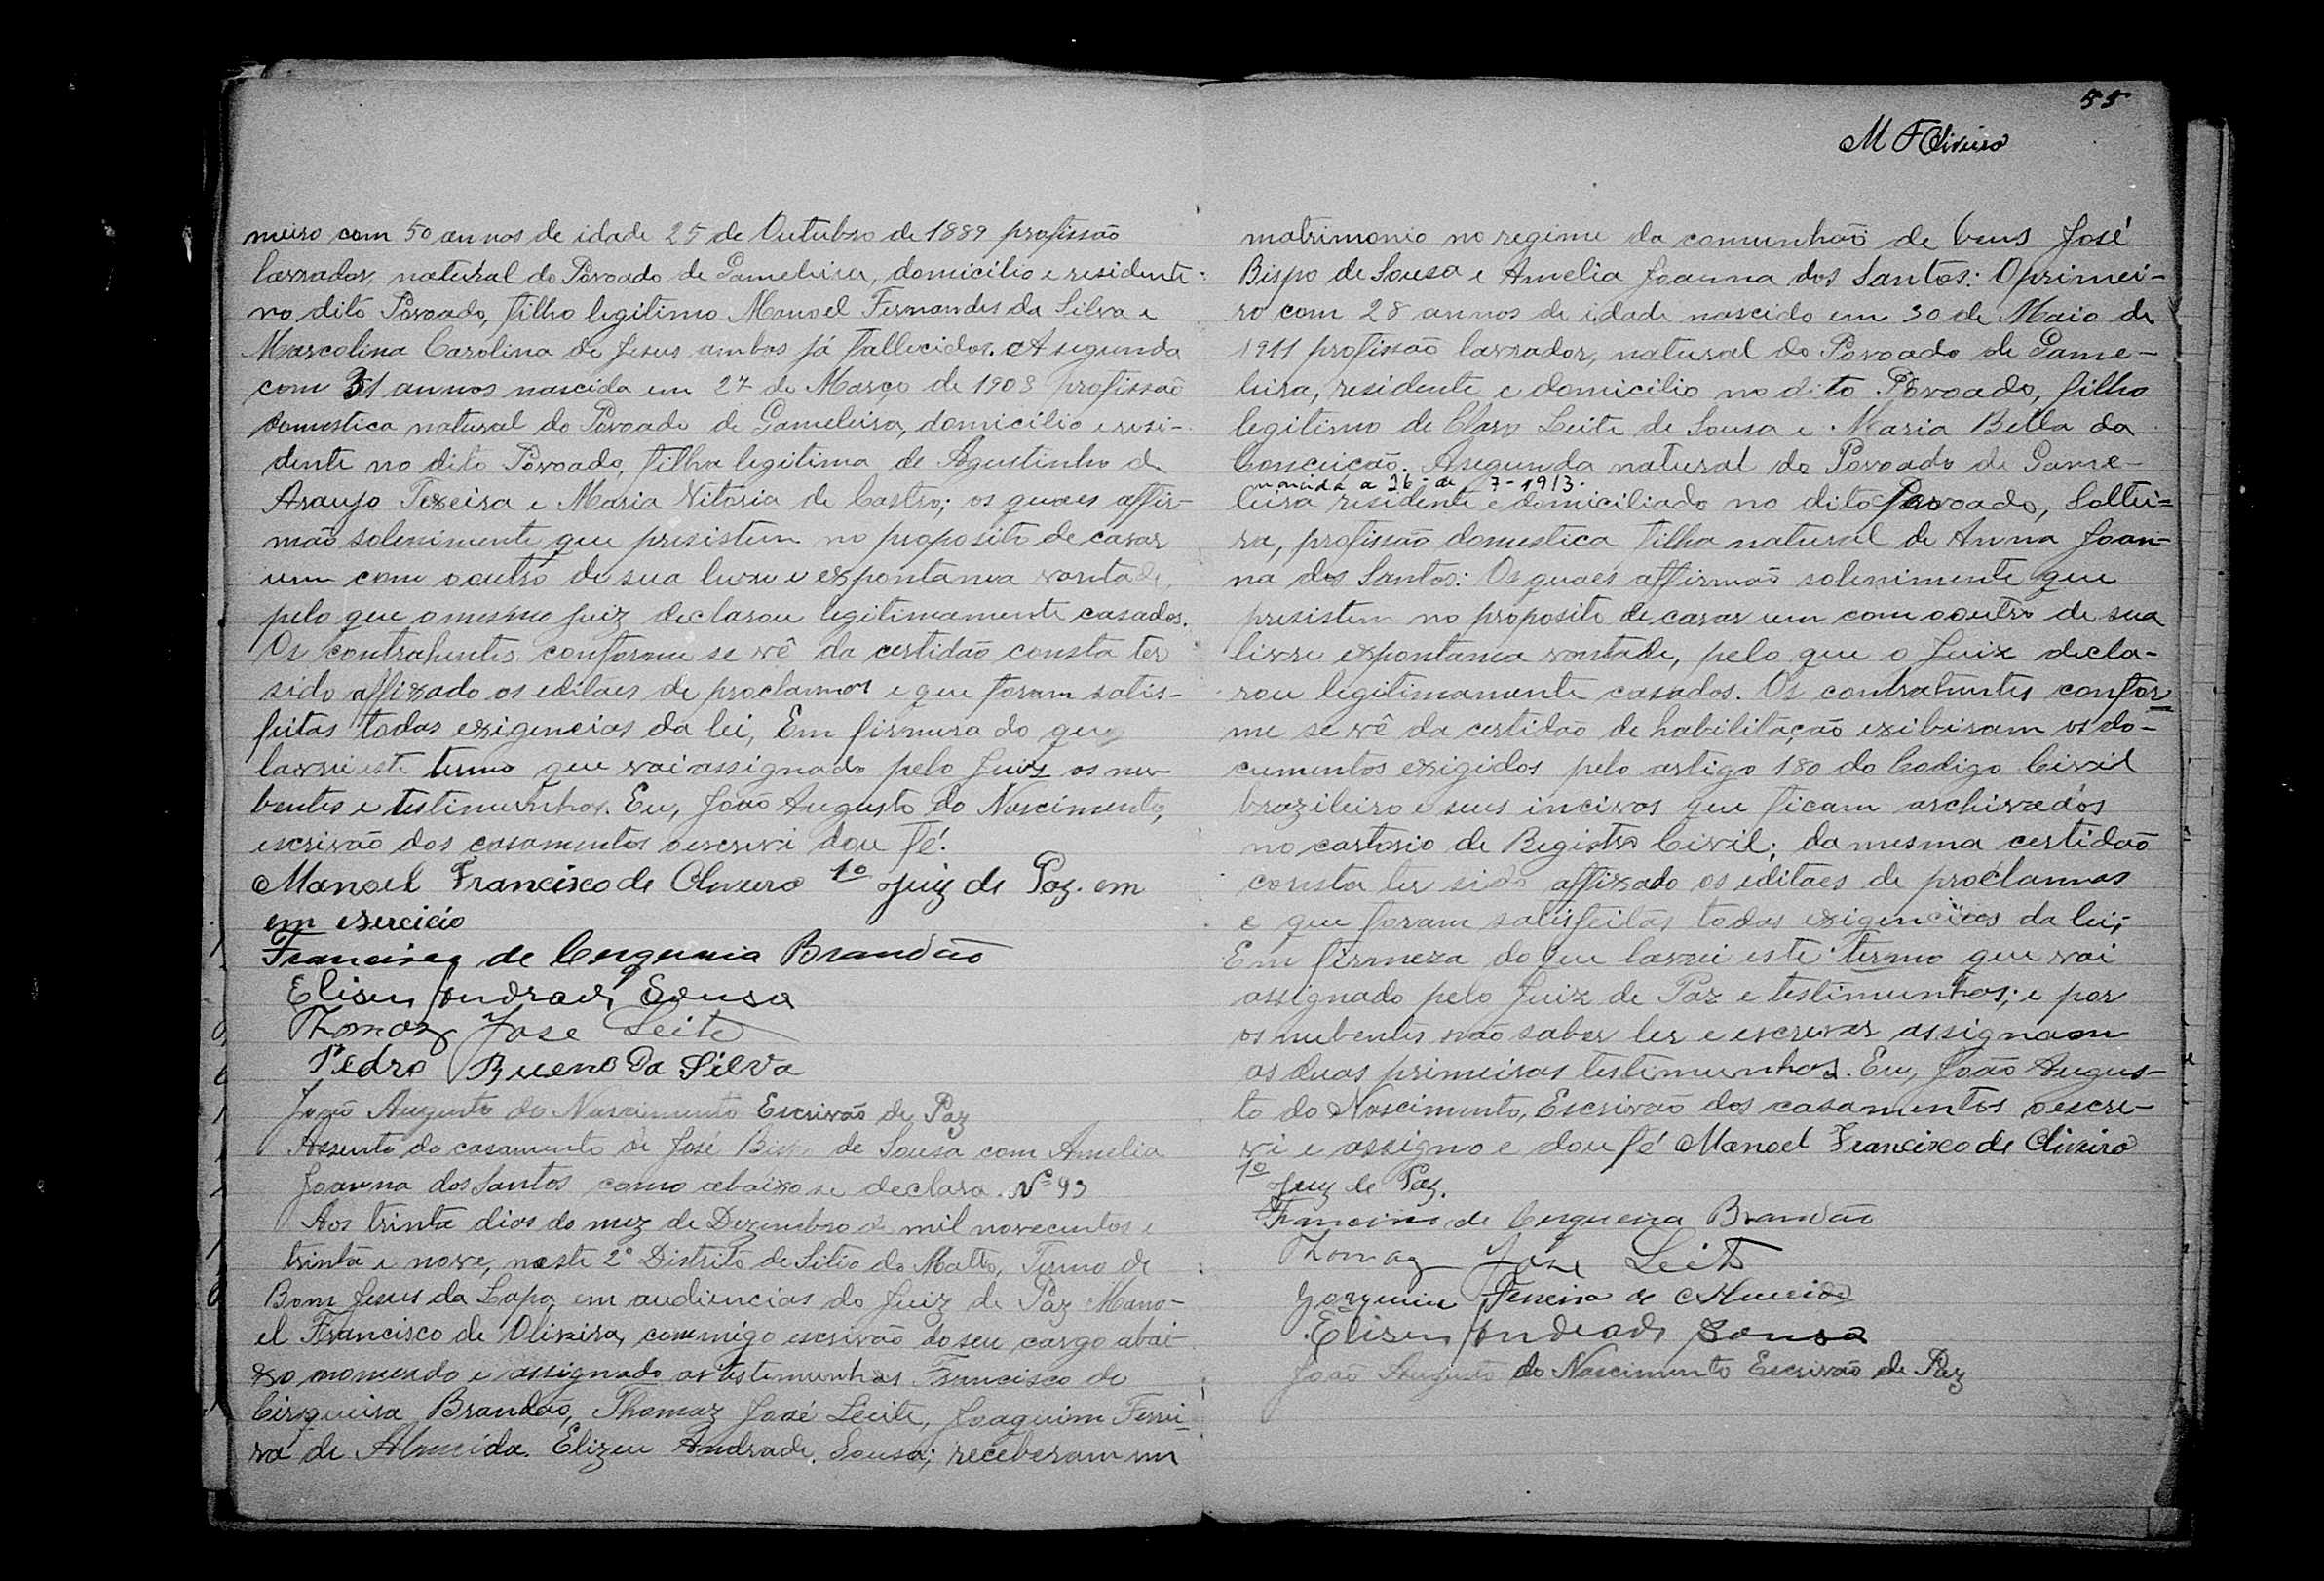 meiro com 50 annos de idade 25 de Outubro de 1889 profissão
lavrador, natural do Povoado de Gameleira, domicilio e residente
no dito Povoado, filho legitimo Manoel Fernandes da Silva e
Marcolina Carolina de Jesus ambos já fallecidos. A segunda
com 31 annos nascida em 27 de Março de 1908 profissão
domestica natural do Povoado de Gameleira, domicilio e resi-
dente no dito Povoado, filha legitima de Agustinho de
Araujo Texeira e Maria Vitoria de Castro; os quaes affir-
mão solenimente que presistem no proposito de casar
um com o outro de sua livre e expontania vontade,
pelo que o mesmo juiz declarou legitimamente casados.
Os contrahentes conforme se vê da certidão consta ter
sido affixado os editaes de proclamos e que foram satis-
feitas todas exigencias da lei, Em firmesa do que
lavrei este termo que vai assignado pelo Juiz os nu-
bentes e testimunhas. Eu, João Augusto do Nascimento,
escrivão dos casamentos o escrevi dou fé.
Manoel Francisco de Oliveira 1º Juiz de Paz. em
em exercicio
Francisco de Cerqueira Brandão
Eliseu Andrade Sousa
Thomaz Jose Leite
Pedro Bueno Da Silva
João Augusto do Nascimento Escrivão de Paz
Assento do casamento de José Bispo de Sousa com Amelia
Joanna dos Santos como abaixo se declara. Nº 93
Aos trinta dias do mez de Dezembro de mil novecentos e
trinta e nove, neste 2º Distrito de Sitio do Matto, Termo de
Bom Jesus da Lapa em audiencias do Juiz de Paz Mano-
el Francisco de Oliveira, commigo escrivão do seu cargo abai-
xo nomeado e assignado as testemunhas Francisco de
Cirqueira Brandão, Thomaz José Leite, Joaquim Ferrei-
ra de Almeida Elizeu Andrade Sousa; receberam em
55
M F Oliveira
matrimonio no regime da comunhão de bens José
Bispo de Sousa e Amelia Joanna dos Santos: O primei-
ro com 28 annos de idade nascido em 30 de Maio de
1911 profissão lavrador, natural do Povoado de Game-
leira, residente e domicilio no dito Povoado, filho
legitimo de Claro Leite de Sousa e Maria Bella da
Conceicão. A segunda natural do Povoado de Game-
nascida a 26 - de 7 - 1913.
leira residente e domiciliado no dito Povoado, Soltei-
ra, profissão domestica filha natural de Anna Joan-
na dos Santos: Os quaes affirmão solenimente que
presistem no proposito de casar um com o outro de sua
livre expontania vontade, pelo que o Juiz decla-
rou legitimamente casados. Os contrahentes confor
me se vê da certidão de habilitação exibiram os do-
cumentos exigidos pelo artigo 180 do Codigo Civil
brazileiro e seus incivos que ficam archivados
no cartorio de Registro Civil; da mesma certidão
consta ter sido affixado os editaes de proclamas
e que foram satisfeitas todas exigencias da lei;
Em firmeza do que lavrei este termo que vai
assignado pelo Juiz de Paz e testimunhas; e por
os nubentes não saber ler e escrever assignam
as duas primeiras testimunhas. Eu, João Augus-
to do Nascimento, Escrivão dos casamentos o escre-
vi e assigno e dou fé Manoel Francisco de Oliveira
1º Juiz de Paz.
Francisco de Cerqueira Brandão
Thomaz José Leite
Joaquim Ferreira de Almeida
Eliseu Andrade Sousa
João Augusto do Nascimento Escrivão de Paz